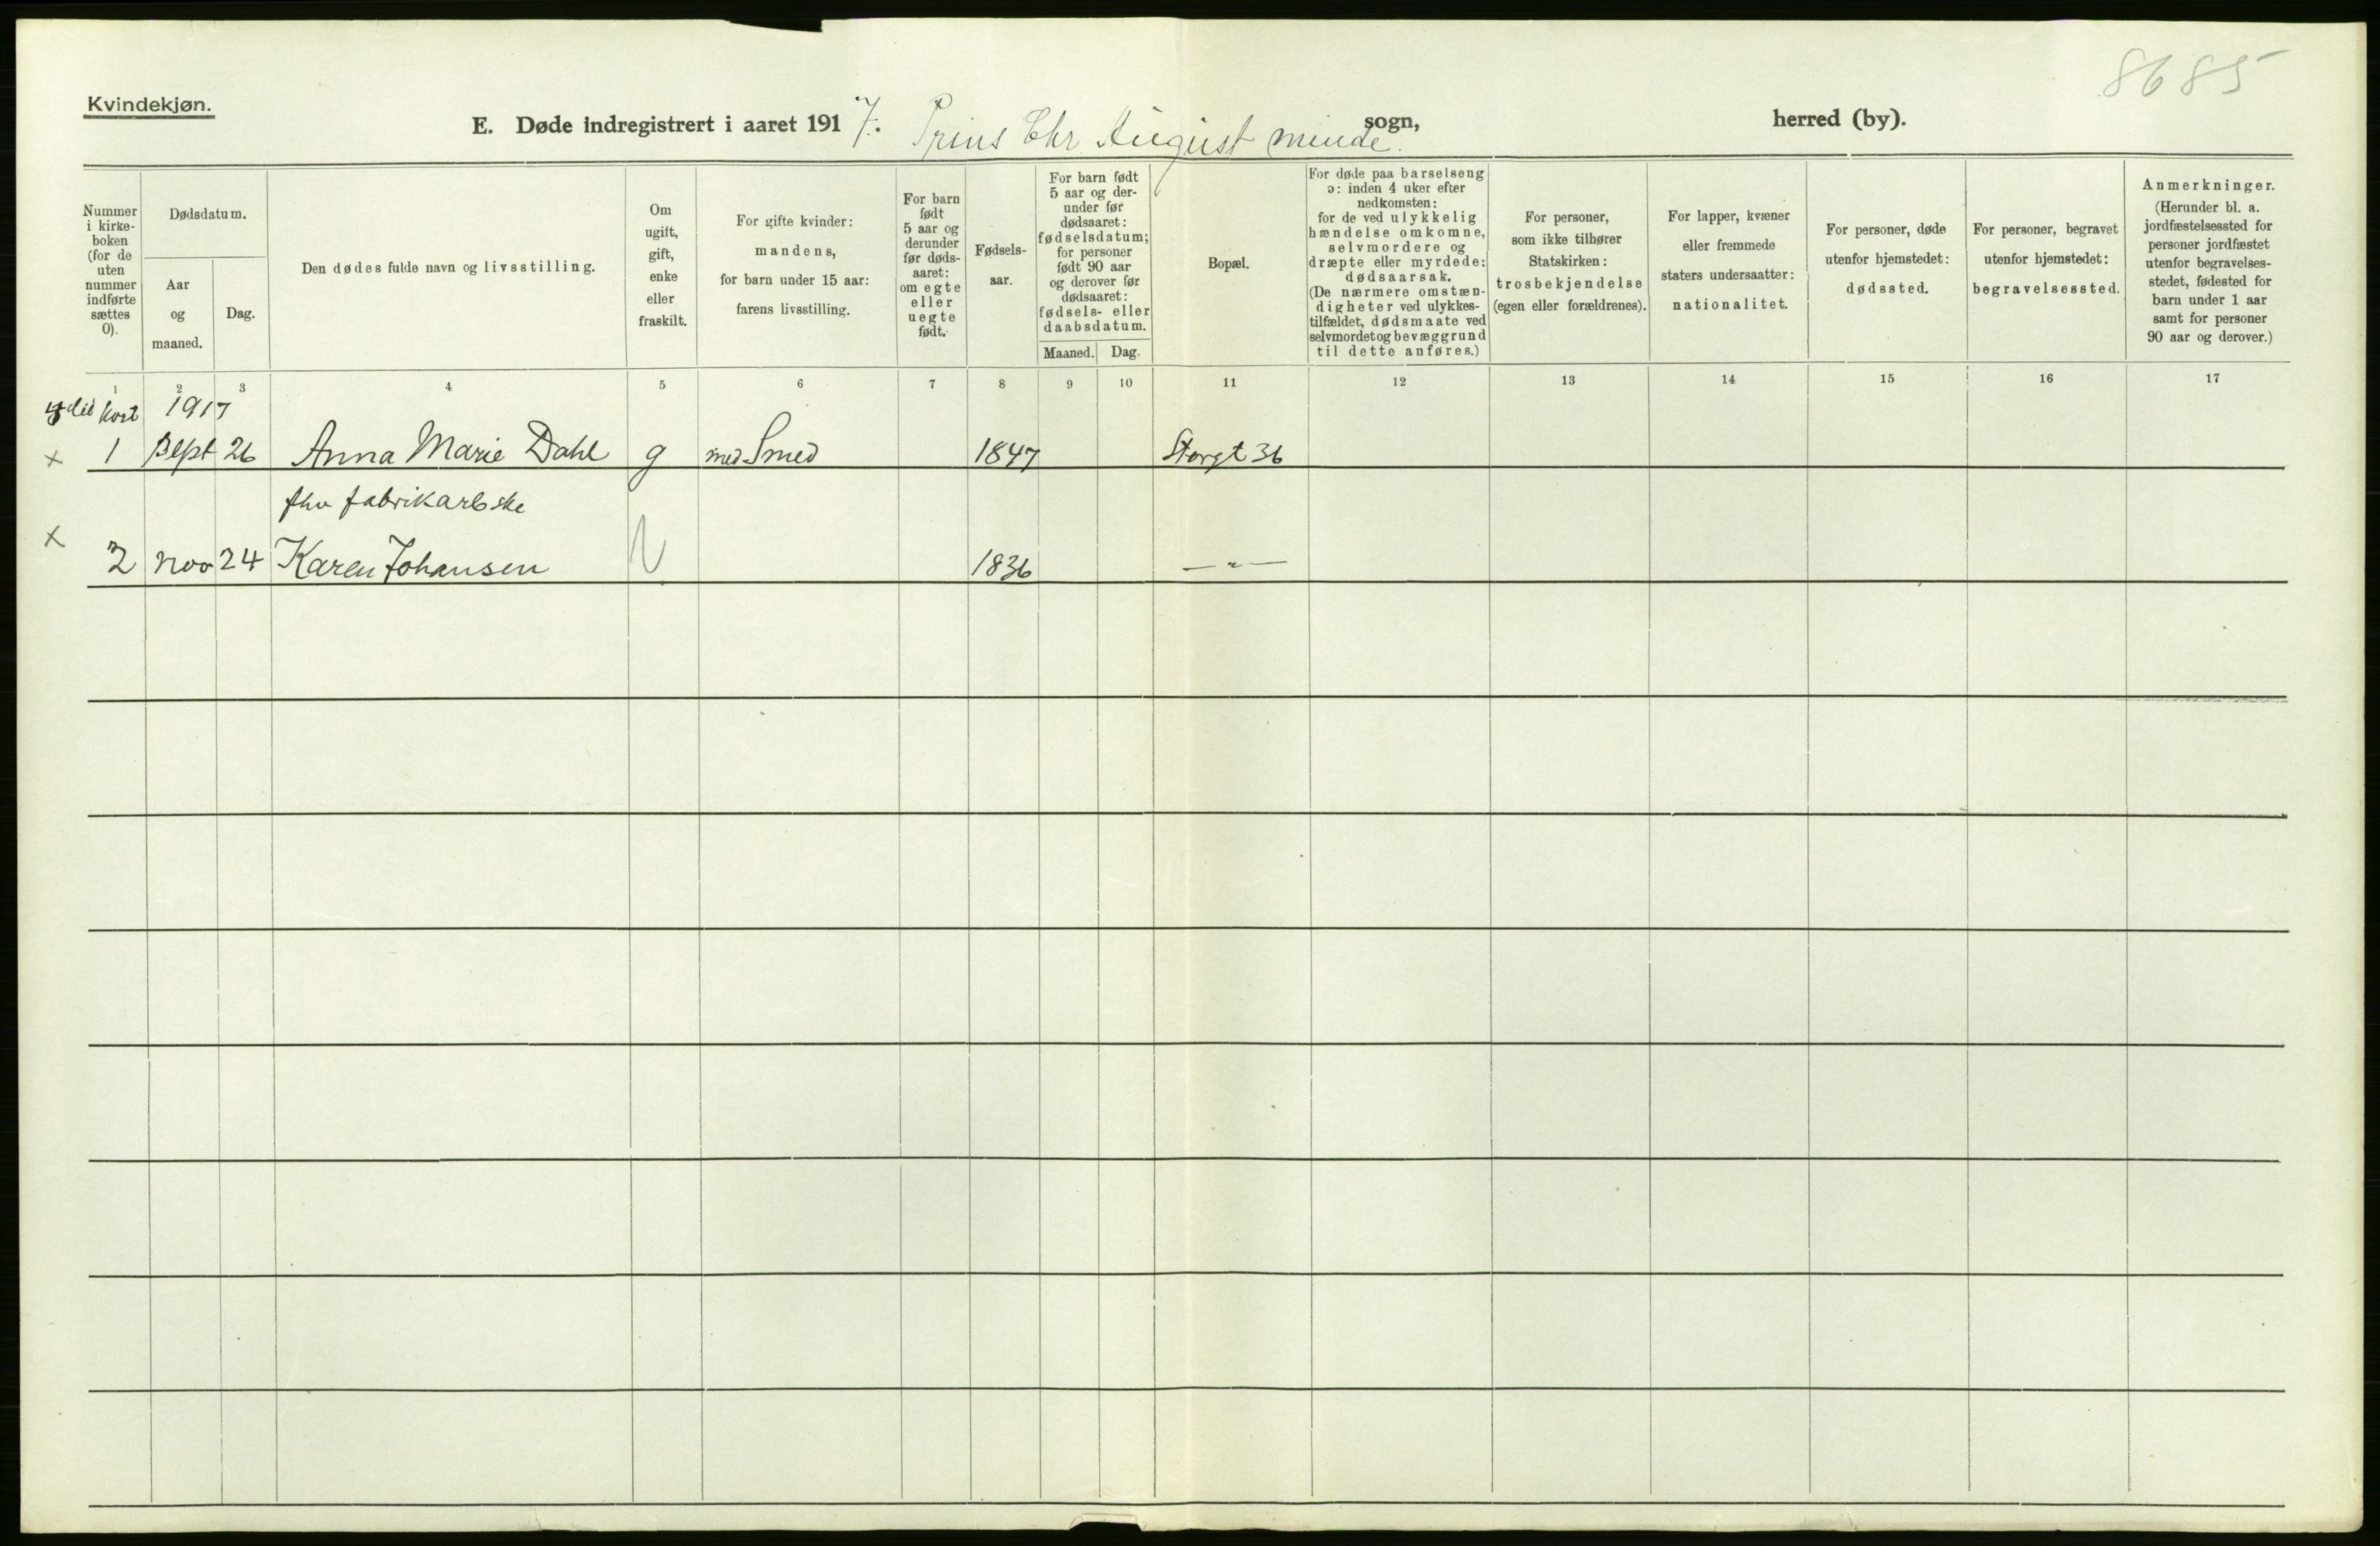 8685
Kvindekjøn.
E. Døde indregistrert i aaret 1917. Prins Chr August minde. sogn, herred (by).
Nummer i kirke-boken (for de uten nummer indførte sættes 0).
Dødsdatum.
Aar og maaned.
Dag.
Den dødes fulde navn og livsstilling.
Om ugift, gift, enke eller fraskilt.
For gifte kvinder: mandens, for barn under 15 aar: farens livsstilling.
For barn født 5 aar og derunder før døds-aaret: om egte eller uegte født.
Fødsels-aar.
For barn født 5 aar og der-under før dødsaaret: fødselsdatum; for personer født 90 aar og derover før dødsaaret: fødsels- eller daabsdatum.
Maaned. Dag.
Bopæl.
For døde paa barselseng ɔ: inden 4 uker efter nedkomsten: for de ved ulykkelig hændelse omkomne, selvmordere og dræpte eller myrdede: dødsaarsak. (De nærmere omstæn-digheter ved ulykkes-tilfældet, dødsmaate ved selvmordet og bevæggrund til dette anføres.)
For personer, som ikke tilhører Statskirken: trosbekjendelse (egen eller forældrenes).
For lapper, kvæner eller fremmede staters undersaatter: nationalitet.
For personer, døde utenfor hjemstedet: dødssted.
For personer, begravet utenfor hjemstedet: begravelsessted.
Anmerkninger. (Herunder bl. a. jordfæstelsessted for personer jordfæstet utenfor begravelses-stedet, fødested for barn under 1 aar samt for personer 90 aar og derover.)
1 2 3 4 5 6 7 8 9 10 11 12 13 14 15 16 17
kort 1917
x 1 Sept 26 Anna Marie Dahl g med Smed 1847 Storgt 36
fhv fabrikarbske
x 2 nov 24 Karen Johansen 1836 — " —